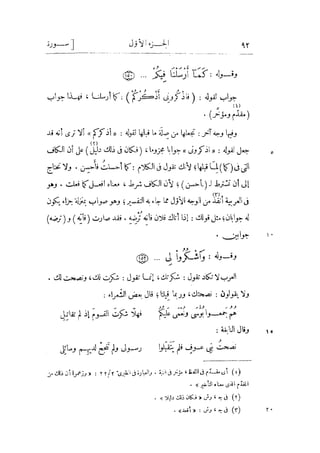 ٩٢ الجزء الأول [ سورة
وقوله : كَمَآ أَرْسَلْنَا فِيكُمْ ... ﴿١٥١﴾
جواب لقوله : (فاذكرونى أذكركم) : كما أرسلنا ، فهذا جواب
(مقدّم ومؤخّر)(١) .
وفيها وجه آخر : تجعلها من صلة ما قبلها لقوله : « أذكركم » ألا ترى أنه قد
جعل لقوله : « اذكرونى » جوابا مجزوما ، (فكان فى ذلك دليل)(٢) على أن الكاف
التى فى (كما) لِمَا قبلها ؛ لأنك تقول فى الكلام : كما أحسنتَ فأحسِن . ولا تحتاج
إلى أن تشترط لـ (أحسن) ؛ لأن الكاف شرط ، معناه افعل كما فعلت . وهو
فى العربية أنفذ(٣) من الوجه الأوّل مما جاء به التفسير ؛ وهو صواب بمنزلة جزاء يكون
له جوابان ؛ مثل قولك : إذا أتاك فلان فأته تُرْضِه . فقد صارت (فأته) و (ترضه)
جوابين .
وقوله : وَاشْكُرُواْ لِى ... ﴿١٥٢﴾
العرب لا تكاد تقول : شكرتك ، إنما تقول : شكرت لك ، ونصحت لك .
ولا يقولون : نصحتك ، وربما قيلتا ؛ قال بعض الشعراء :
هُمُ جمعوا بُؤسَى ونُعْمَى عليكُمُ فهلّا شكرتَ القومَ إذ لم تقاتِلِ
وقال النابغة :
نصحتُ بنى عوفٍ فلم يتقبلوا رسولى ولم تنجح لديهم وسائلى
(١) أى مقدّم فى اللفظ ، مؤخر فى
(٢) فى ج ، وش : « فكان ذلك دليلا » .
(٣) فى ج ، وش :